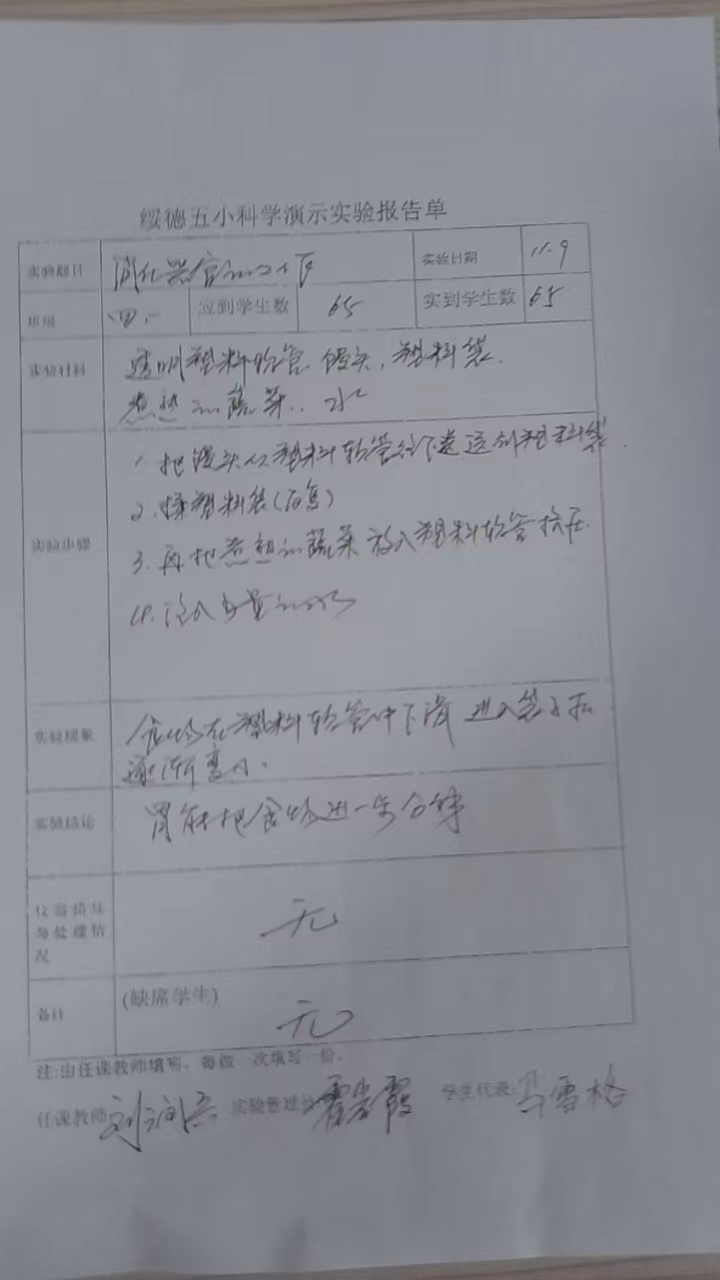 绥德五小科学演示实验报告单
实验题目 消化器官的工作 实验日期 11.9
班级 四.一 应到学生数 65 实到学生数 65
实验材料 透明塑料软管 馒头,塑料袋.
煮熟的蔬菜.. 水
实验步骤 1.把馒头从塑料软管往下 送到塑料袋.
2.揉塑料袋(反复)
3.再把煮熟的蔬菜放入塑料软管挤压
4.注入少量的水
实验现象 食物在塑料软管中下滑 进入袋子后
逐渐变小.
实验结论 胃能把食物进一步分解
仪器损坏
与处理情
况
无
备注 (缺席学生)
无
注:由任课教师填写,每做一次填写一份。
任课教师 刘 实验管理员 霞 学生代表: 马雪格